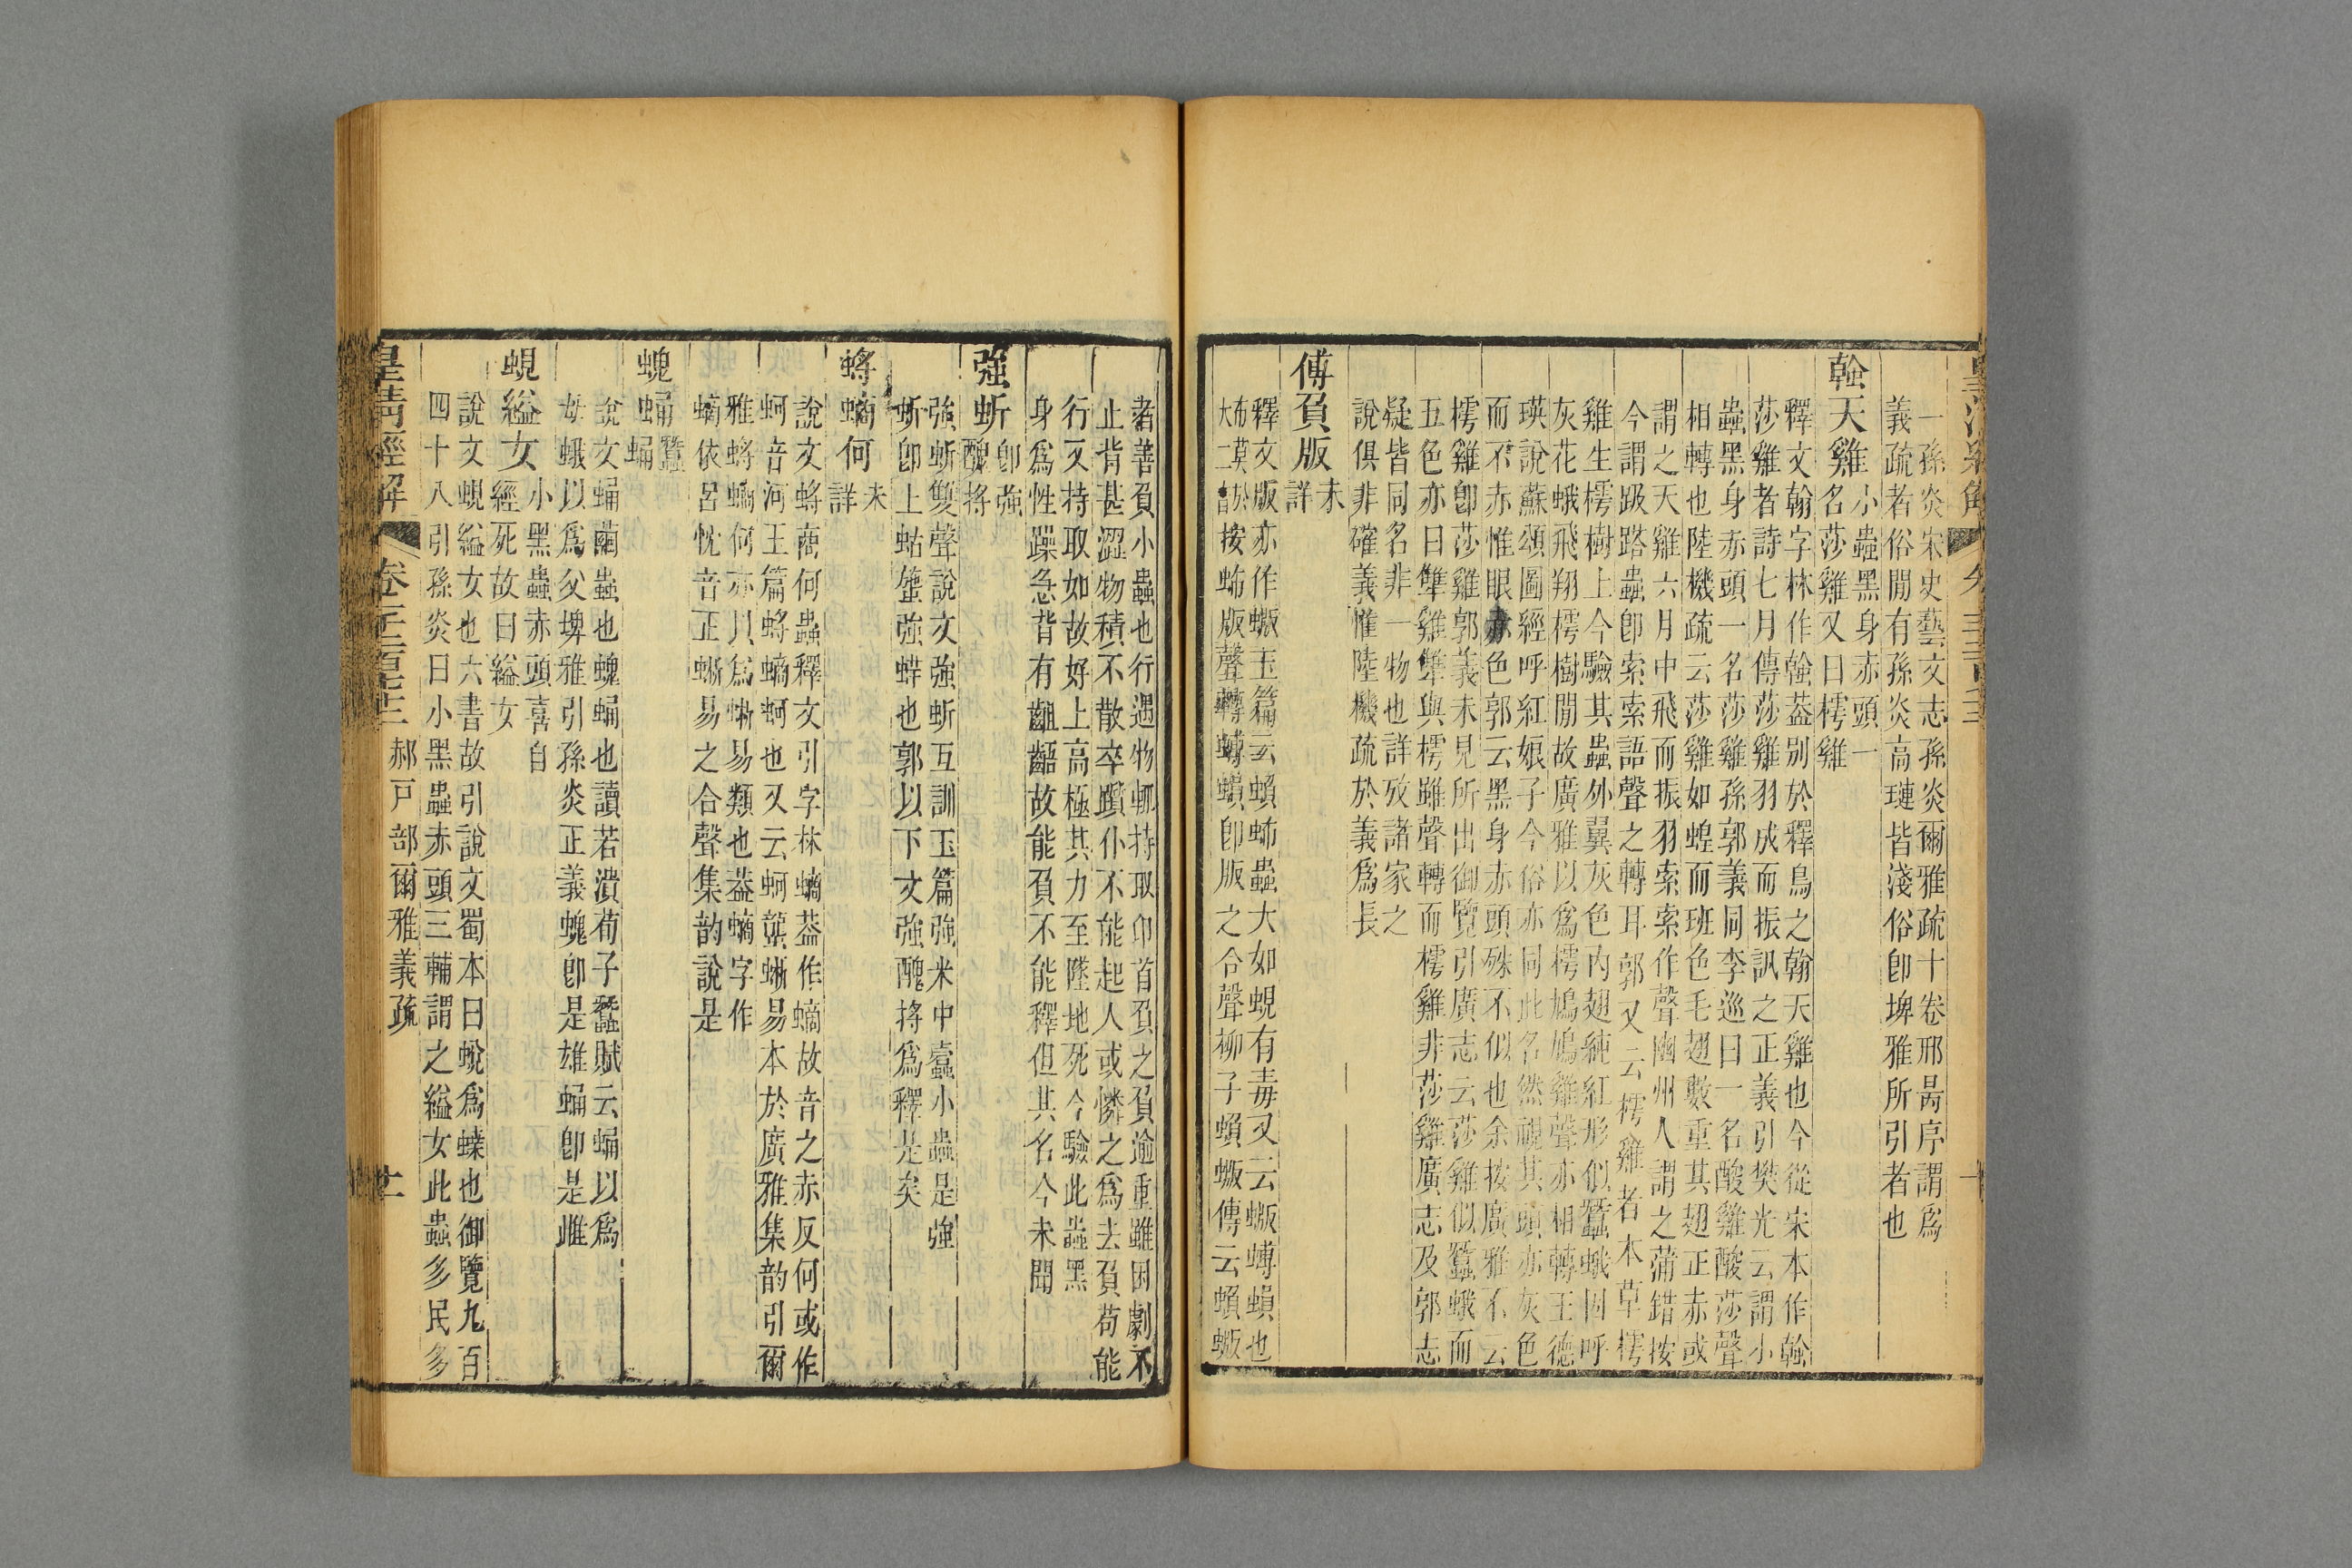 一孫炎宋史藝文志孫炎爾雅疏十卷邢昺序謂爲
義疏者俗閒有孫炎高璉皆淺俗卽埤雅所引者也
螒天雞小蟲黑身赤頭一
名莎雞又曰樗雞
釋文翰字林作螒葢別於釋鳥之翰天雞也今從宋本作螒
莎雞者詩七月傳莎雞羽成而振訊之正義引樊光云謂小
蟲黑身赤頭一名莎雞孫郭義同李巡曰一名酸雞酸莎聲
相轉也陸機疏云莎雞如蝗而班色毛翅數重其翅正赤或
謂之天雞六月中飛而振羽索索作聲幽州人謂之蒲錯按
今謂趿路蟲卽索索語聲之轉耳郭又云樗雞者本草樗
雞生樗樹上今驗其蟲外翼灰色內翅純紅形似蠶蛾因呼
灰花蛾飛翔樗樹閒故廣雅以爲樗鳩鳩雞聲亦相轉王德
瑛說蘇頌圖經呼紅娘子今俗亦同此名然視其頭亦灰色
而不赤惟眼赤色郭云黑身赤頭殊不似也余按廣雅不云
樗雞卽莎雞郭義未見所出御覽引廣志云莎雞似蠶蛾而
五色亦曰雗雞雗與樗雖聲轉而樗雞非莎雞廣志及郭志
疑皆同名非一物也詳攷諸家之
說俱非確義惟陸機疏於義爲長
傅負版未
詳
釋文版亦作蝂玉篇云蝜蛂蟲大如蜆有毒又云蝂蝜蝜也
布莫
大二音於按蛂版聲轉蝜蝜卽版之合聲柳子蝜蝂傳云蝜蝂
者善負小蟲也行遇物輒持取卬首負之負逾重雖困劇不
止背甚澀物積不散卒躓仆不能起人或憐之爲去負苟能
行又持取如故好上高極其力至墜地死今驗此蟲黑
身爲性躁急背有齟齬故能負不能釋但其名今未聞
強蚚卽強
醜捋
強蚚雙聲說文強蚚互訓玉篇強米中蠹小蟲是強
蚚卽上蛄䗐強蛘也郭以下文強醜捋爲釋是矣
蛶螪何未
詳
說文蛶商何蟲釋文引字林螪葢作螪故音之赤反何或作
蚵音河王篇蛶螪蚵也又云蚵蠪蜥易本於廣雅集韵引爾
雅蛶螪何亦以爲蜥易類也葢螪字作
螪依呂忱音正蜥易之合聲集韵說是
螝蛹蠶
蛹
說文蛹繭蟲也螝蛹也讀若潰荀子蠶賦云蛹以爲
母蛾以爲父埤雅引孫炎正義螝卽是雄蛹卽是雌
蜆縊女小黑蟲赤頭喜自
經死故曰縊女
說文蜆縊女也六書故引說文蜀本曰蛻爲蝶也御覽九百
四十八引孫炎曰小黑蟲赤頭三輔謂之縊女此蟲多民多
皇清經解 卷 郝戶部爾雅義疏 十一